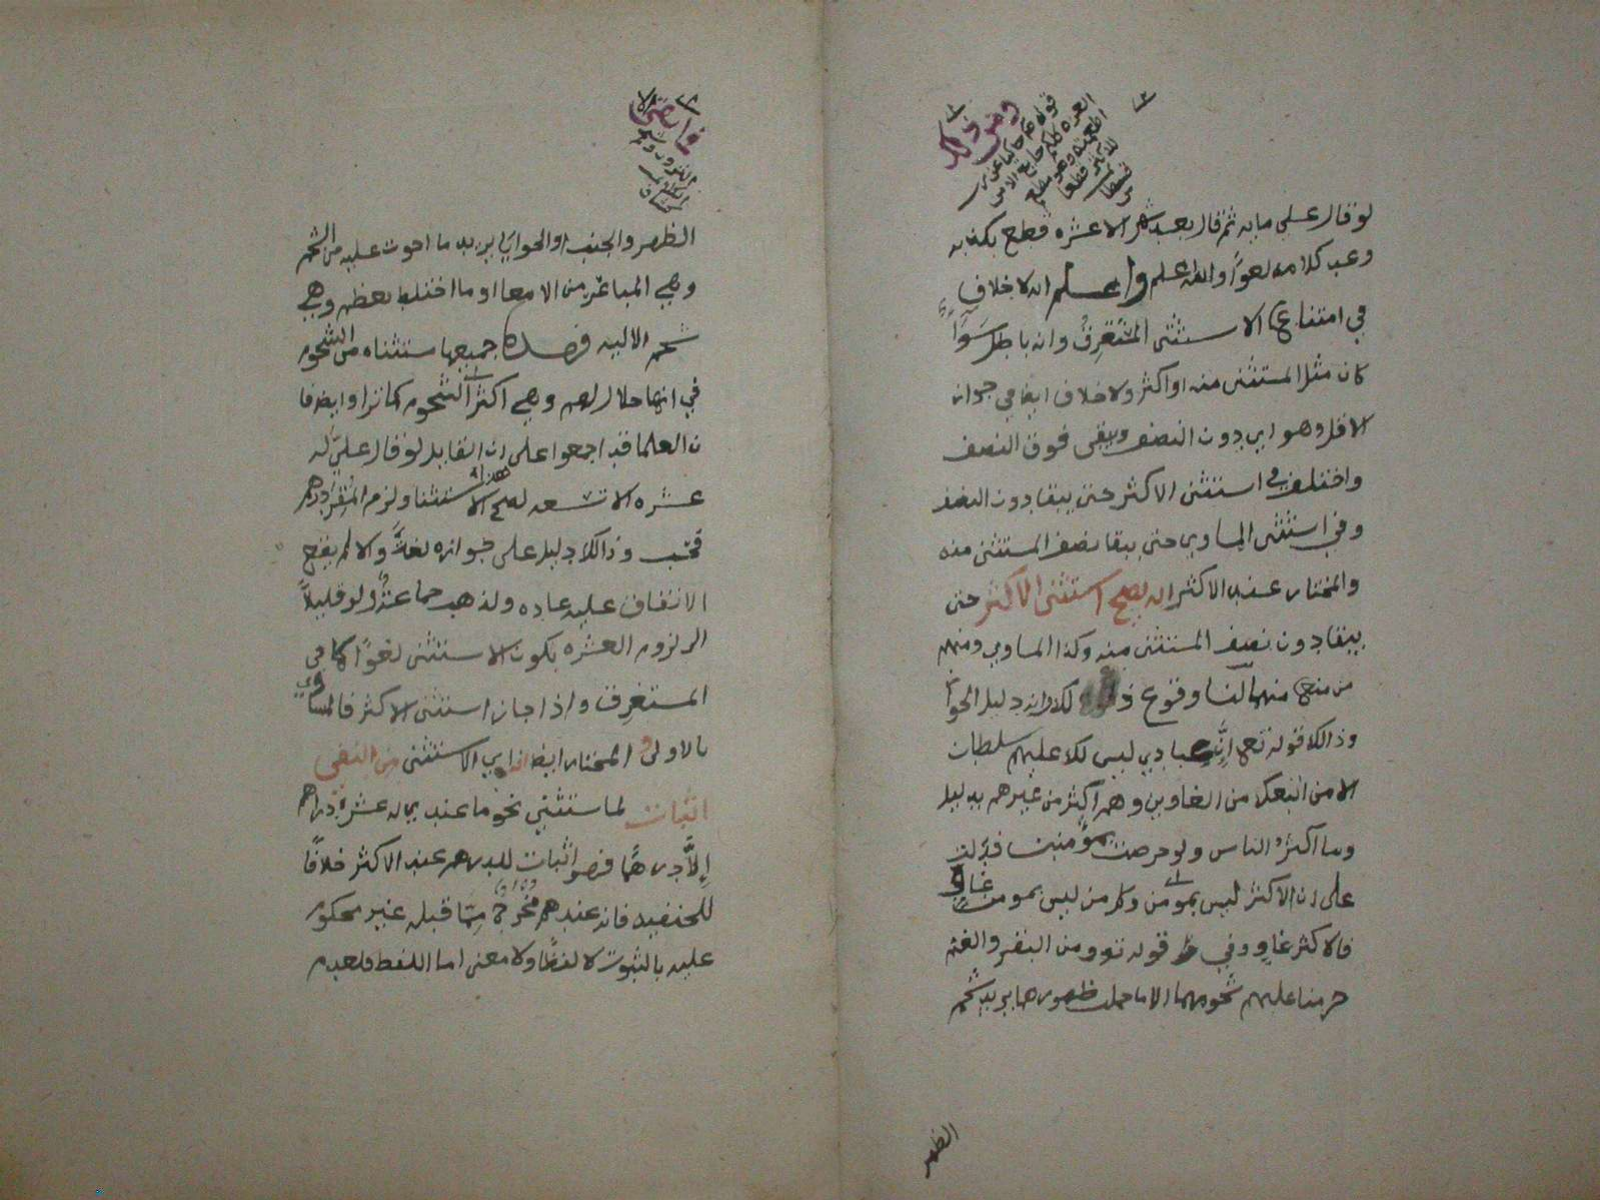 لو قال علي مايه ثم قال بعد شهر الا عشره قطع بكذبه
وعد كلامه لغوًا والله علم واعلم انه لا خلاف
في امتناع الاستثنى المستغرق وانه باطل سوًاء
كان مثل المستثنى منه او اكثر ولا خلاف ايضا في جوازه
الاقل وهو اي دون النصف ويبقى فوق النصف
واختلف في استثنى الاكثر حتى يبقا دون النصف
وفي استثنى المساوي حتى يبقا نصف المستثنى منه
والمختار عند الاكثر انه يصح استثنى الاكثر حتى
يبقا دون نصف المستثنى منه وكذا المساوي ومنهم
من منع منهما لنا وقوع ذلك وانه دليل الجواز
وذالك قوله تعا إنَّ عبادي ليس لك عليهم سلطان
الا من اتبعك من الغاوين وهم اكثر من غيرهم بدليل
وما اكثر الناس ولو حرصت بمؤمنين فدلت
على ان الاكثر ليس بمومن وكل من ليس بمومن غاوٍ
فالاكثر غاوٍ وفي قوله تع ومن البقر والغنم
حرمنا عليهم شحومهما الا ما حملت ظهورهما يريد شحم
الظهر
الظهر والجنب او الحوايا يريد ما احوت عليه من الشحم
وهي المباعر من الامعا او ما اختلط بعظم وهي
شحم الاليه فهذه جميعها مستثناه من الشحوم
في انها حلال لهم وهي اكثر الشحوم كما ترا وايضا فا
ن العلما قد اجمعوا على ان القايل لو قال علي له
عشره الا تسعه لصح هذا الاستثنا ولزم المقر درهم
فحسب وذالك دليل على جوازه لغةً والا لم يقع
الاتفاق عليه عاده ولذهب جماعةٌ ولو قليلاً
الى لزوم العشره بكون الاستثنى لغوًا كما في
المستغرق واذا جاز استثنى الاكثر فالمساوي
بالاولى و المختار ايضا انه اي الاستثنى من النفي
اثبات لما ستثني نحو ما عندي له عشرة دراهم
إلاَّ درهمًا فهو اثبات للدرهم عند الاكثر خلافًا
للحنفيه فانه عندهم مخرج مما قبله غير محكوم
عليه بالثبوت لا لفظًا ولا معنى اما اللفظ فلعدم